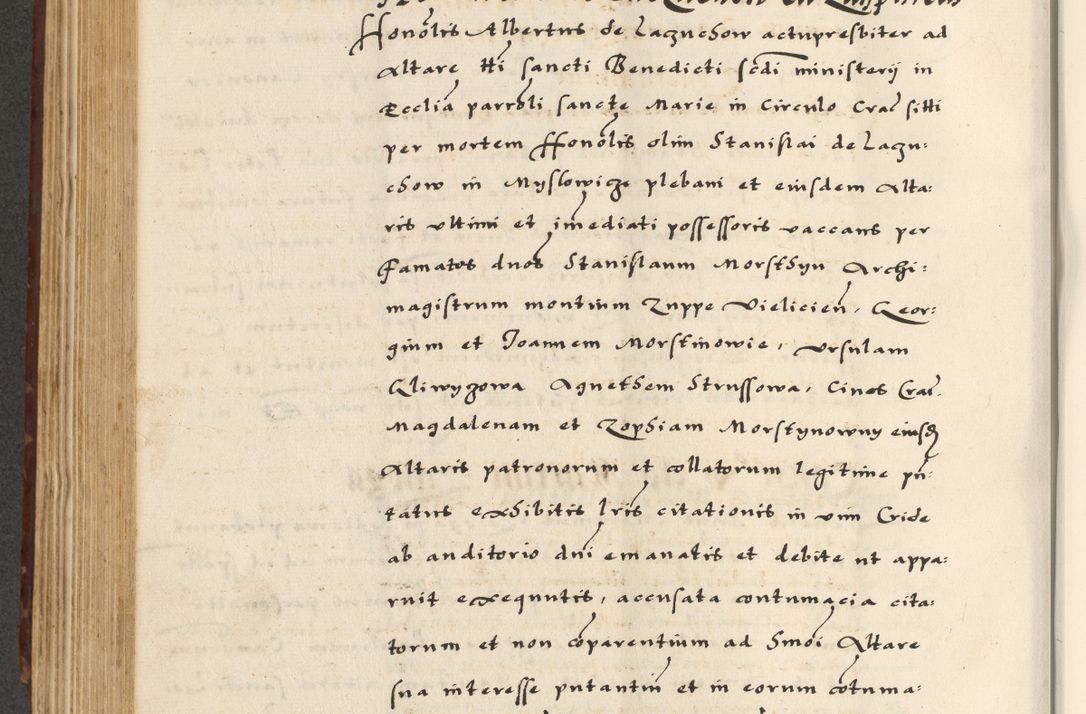 Honolis Albertus de Laczuchow actupresbiter ad
Altare tti sancti Benedicti scdi ministerij in
Ecclia parroli sancte Marie in Circulo Crac sitti
per mortem Honolis olim Stanislai de Laczu:
chow in Myslowicze plebani et eiusdem Alta:
ris vltimi et imediati possessoris vaccans per
Famatos dnos Stanislaum Morsthyn Archi:
magistrum montium Zuppe Vielicien, Geor:
gium et Joannem Morstinowie, Vrsulam
Gliwyczowa Agnethem Strussowa, Cives Crac.
Magdalenam et Zophiam Morstynowny eiusdq
Altaris patronorum et collatorum legitime pn:
tatus exhibitis lris citationis in vim Cride
ab auditorio dni emanatis et debite ut appa:
ruit exequutis, accusata contumacia cita:
torum et non coparentium ad hmoi Altare
sua interesse putantiu et in eorum cotuma: